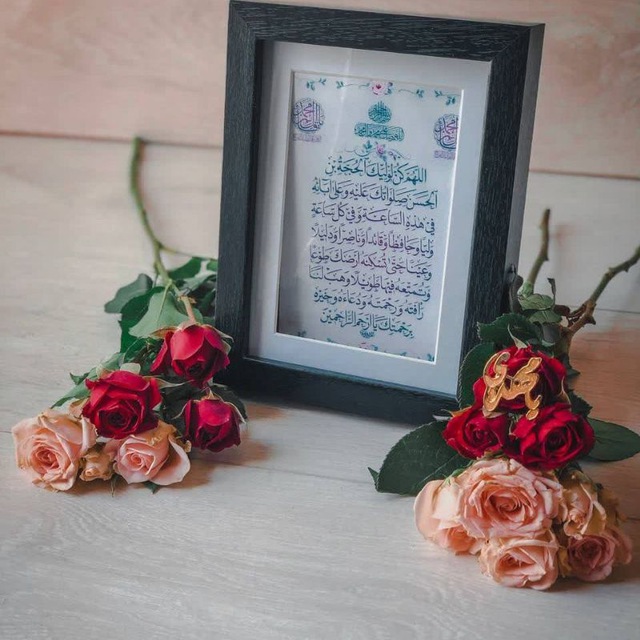 اللهم كن لوليك الحجة بن
الحسن صلواتك عليه وعلى آبائه
في هذه الساعة وفي كل ساعة
وليا وحافظا وقائدا وناصرا ودليلا
وعينا حتى تسكنه أرضك طوعا
وتمتعه فيها طويلا وهب لنا
رأفته ورحمته ودعاءه وخيره
برحمتك يا أرحم الراحمين
مهدی